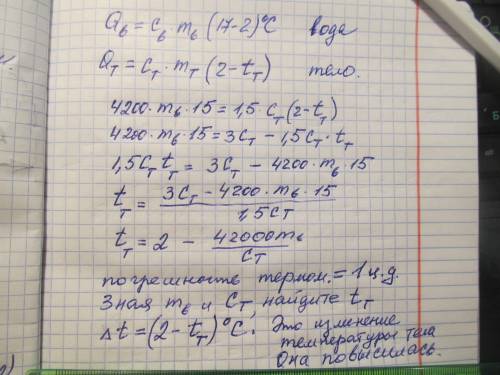 Qв = cв · mв (17-2)°C вода
Qт = cт · mт (2-tт) тело.
4200 · mв · 15 = 1,5 · cт (2-tт)
4200 · mв · 15 = 3cт - 1,5cт · tт
1,5cт tт = 3cт - 4200 · mв · 15
tт = (3cт - 4200 · mв · 15) / 1,5cт
tт = 2 - 42000mв / cт
погрешность термом. = 1 ц.д.
Зная mв и cт, найдите tт
Δt = (2-tт)°C. Это изменение
температуры тела
Она повысилась.